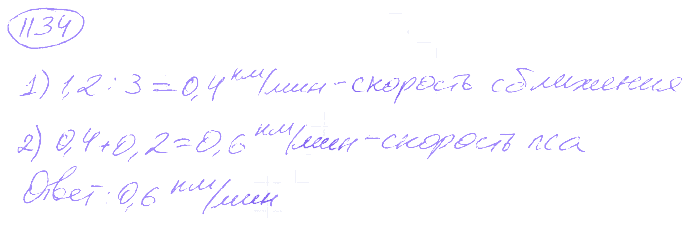 1134
1) 1,2 : 3 = 0,4 км/мин - скорость сближения
2) 0,4 + 0,2 = 0,6 км/мин - скорость пса
Ответ: 0,6 км/мин